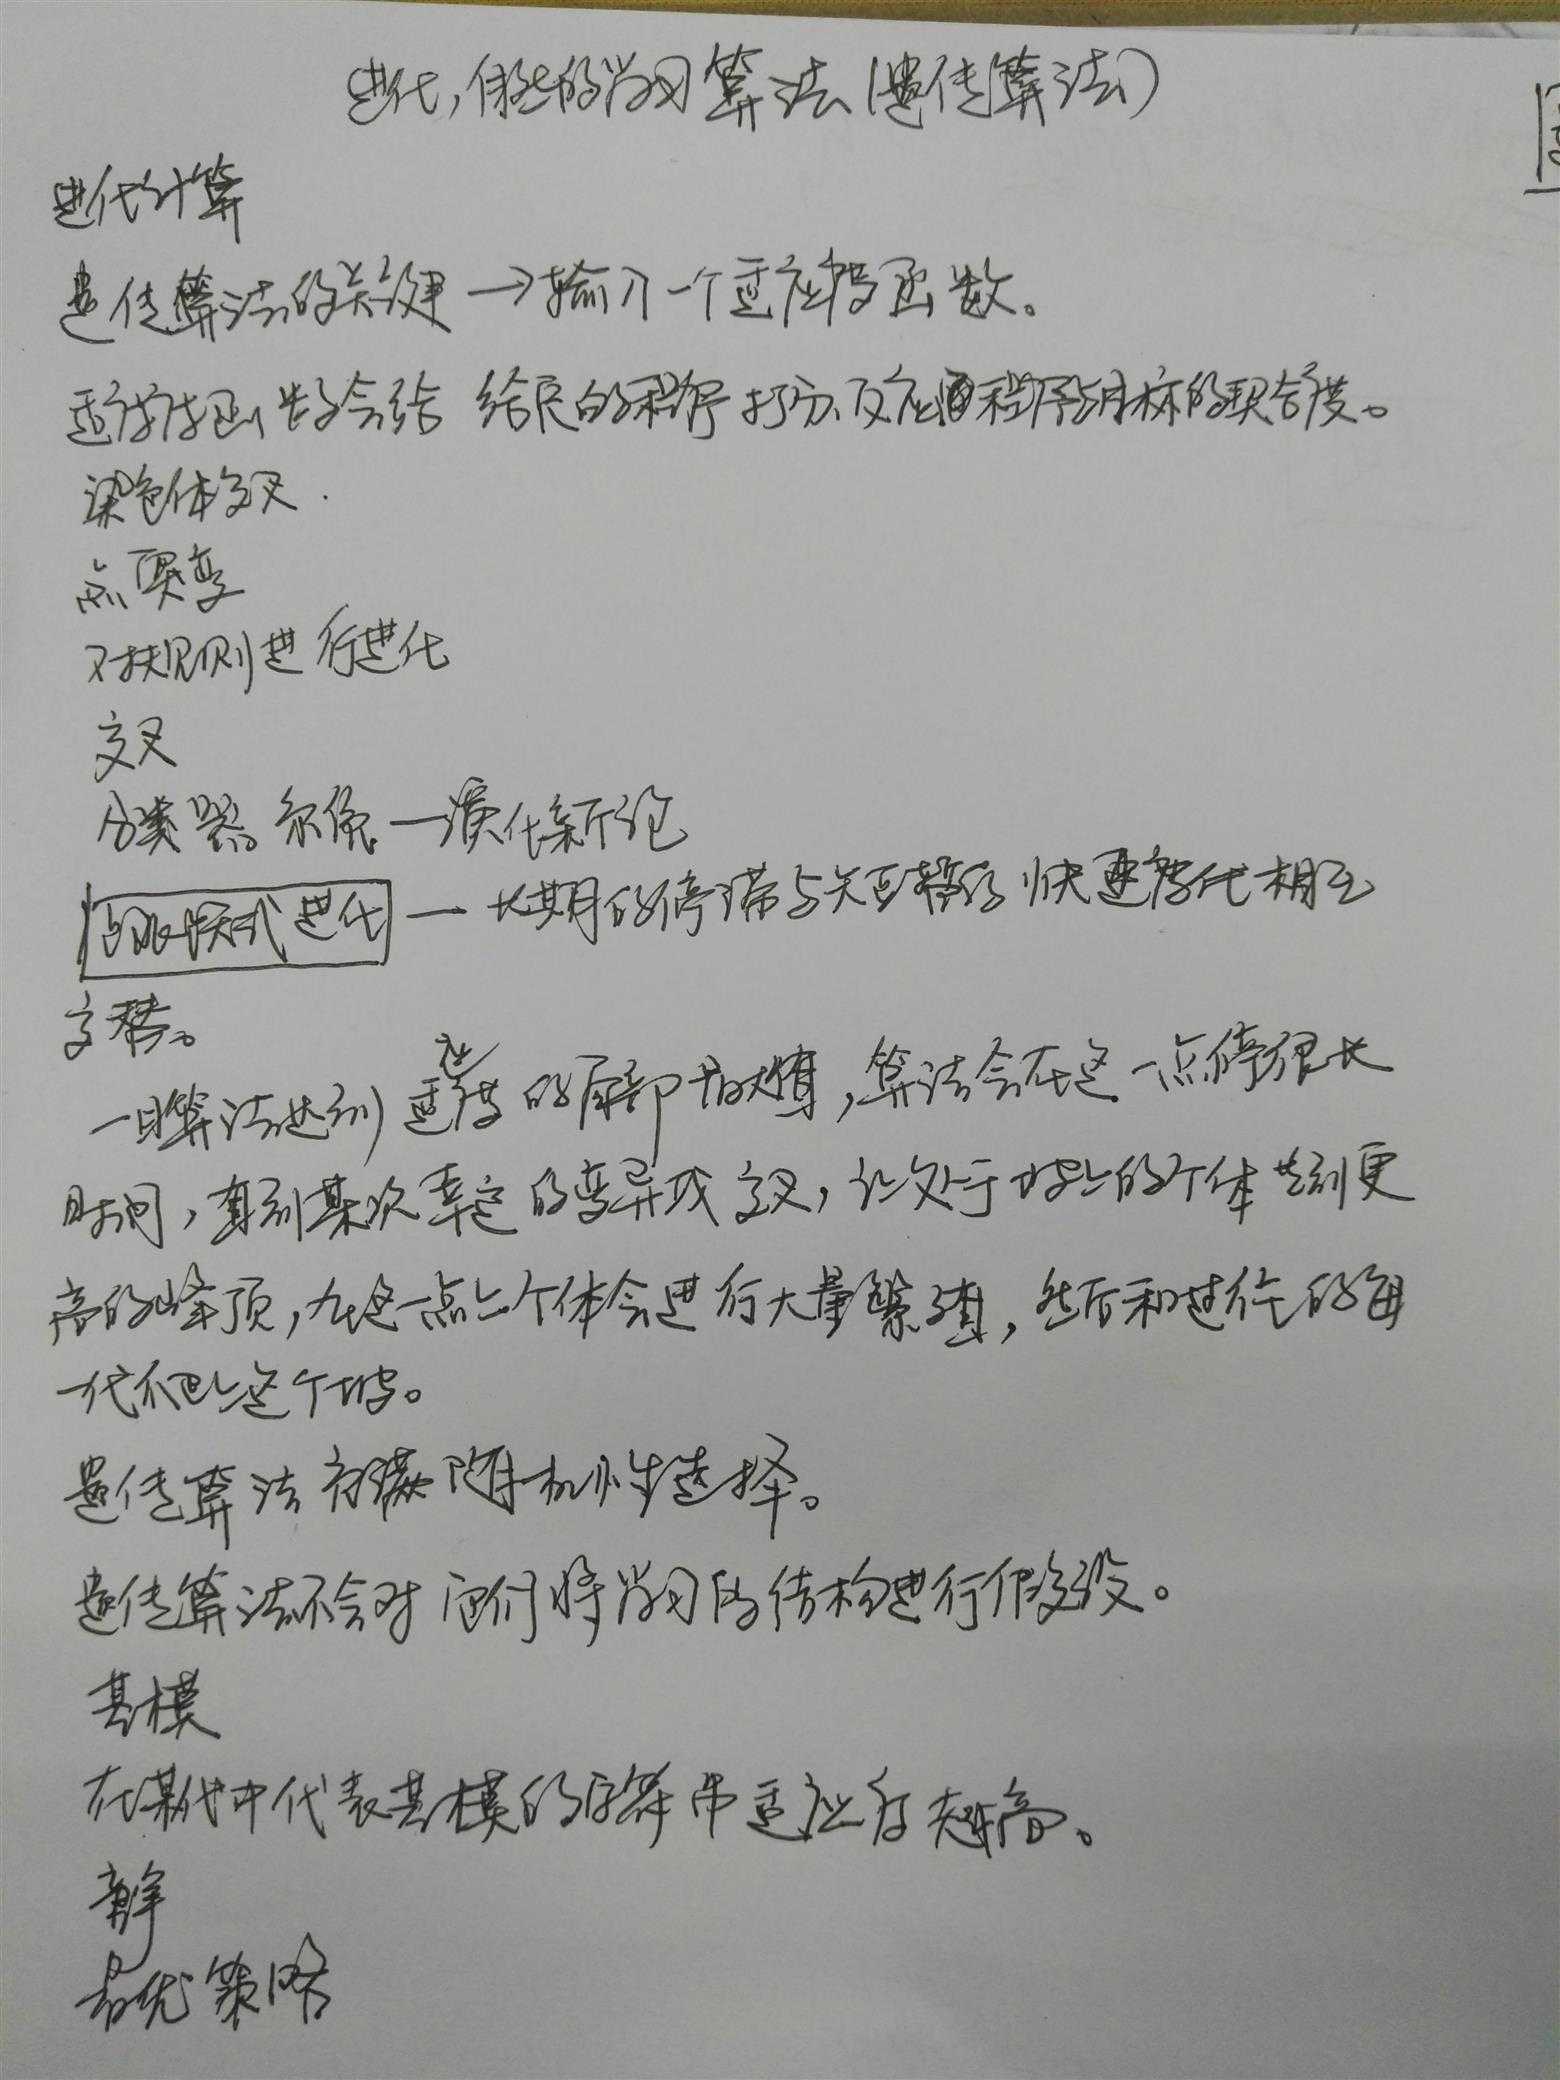 进化,自然的学习算法(遗传算法)
进化计算
遗传算法的关键→输入一个适应度函数。
适应度函数会给 给定的程序打分,反应程序与目标的契合度。
染色体交叉.
点突变
对规则进行进化
交叉
分类器系统—演化新论
间断式进化—长期的停滞与 快速进化相互
交替。
一旦算法达到适应度的局部最大值,算法会在这一点停很长
时间,直到某次幸运的变异或交叉,让处于坡上的个体达到更
高的峰顶,在这一点上个体会进行大量繁殖,然后和进化的每
一代爬上这个坡。
遗传算法 随机性选择。
遗传算法不会对它们将学习的结构进行假设。
基模
在某代中代表基模的字符串适应度越高。

最优策略